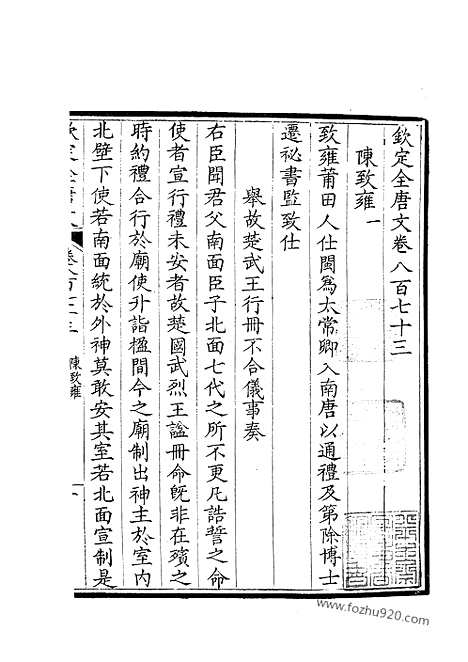 欽定全唐文卷八百七十三
陳致雍一
致雍莆田人仕閩為太常卿入南唐以通禮及第除博士
遷祕書監致仕
舉故楚武王行冊不合儀事奏
右臣聞君父南面臣子北面七代之所不更凡誥誓之命
使者宣行禮未安者故楚國武烈王謚冊命既非在殯之
時約禮合行於廟使升詣楹間今之廟制出神主於室内
北壁下使若南面統於外神莫敢安其室若北面宣制是
欽定全唐文
卷八百七十三
陳致雍
一
www.fozhu920.com